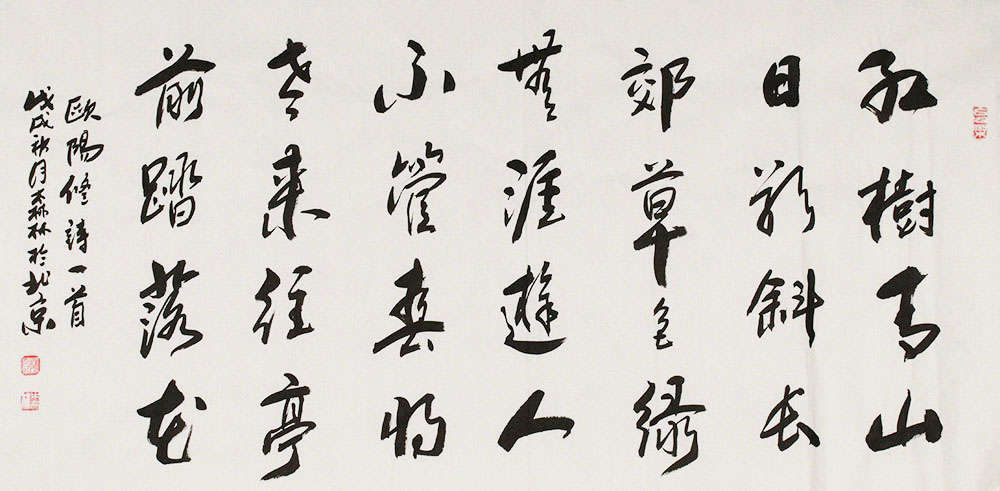 紅樹青山
日欲斜長
郊草色緑
無涯遊人
不管春將
老來往亭
前踏落花
歐陽修詩一首
戊戌秋月森林於北京